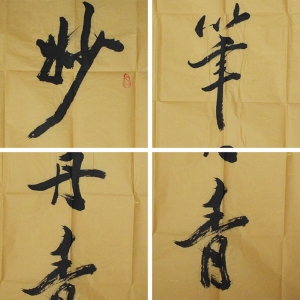 妙
筆
丹
青
青